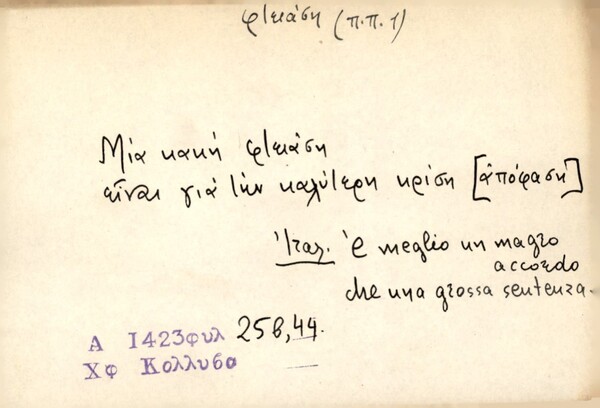 φτιάση (π.π. 1)
Μία κακή φτιάση
εἶναι γιά τήν καλύτερη κρίση [ἀπόφαση]
Ἰταλ. È meglio un magro
accordo
che una grossa sentenza.
Α 1423φυλ 258,44.
Χφ Κολλυβα